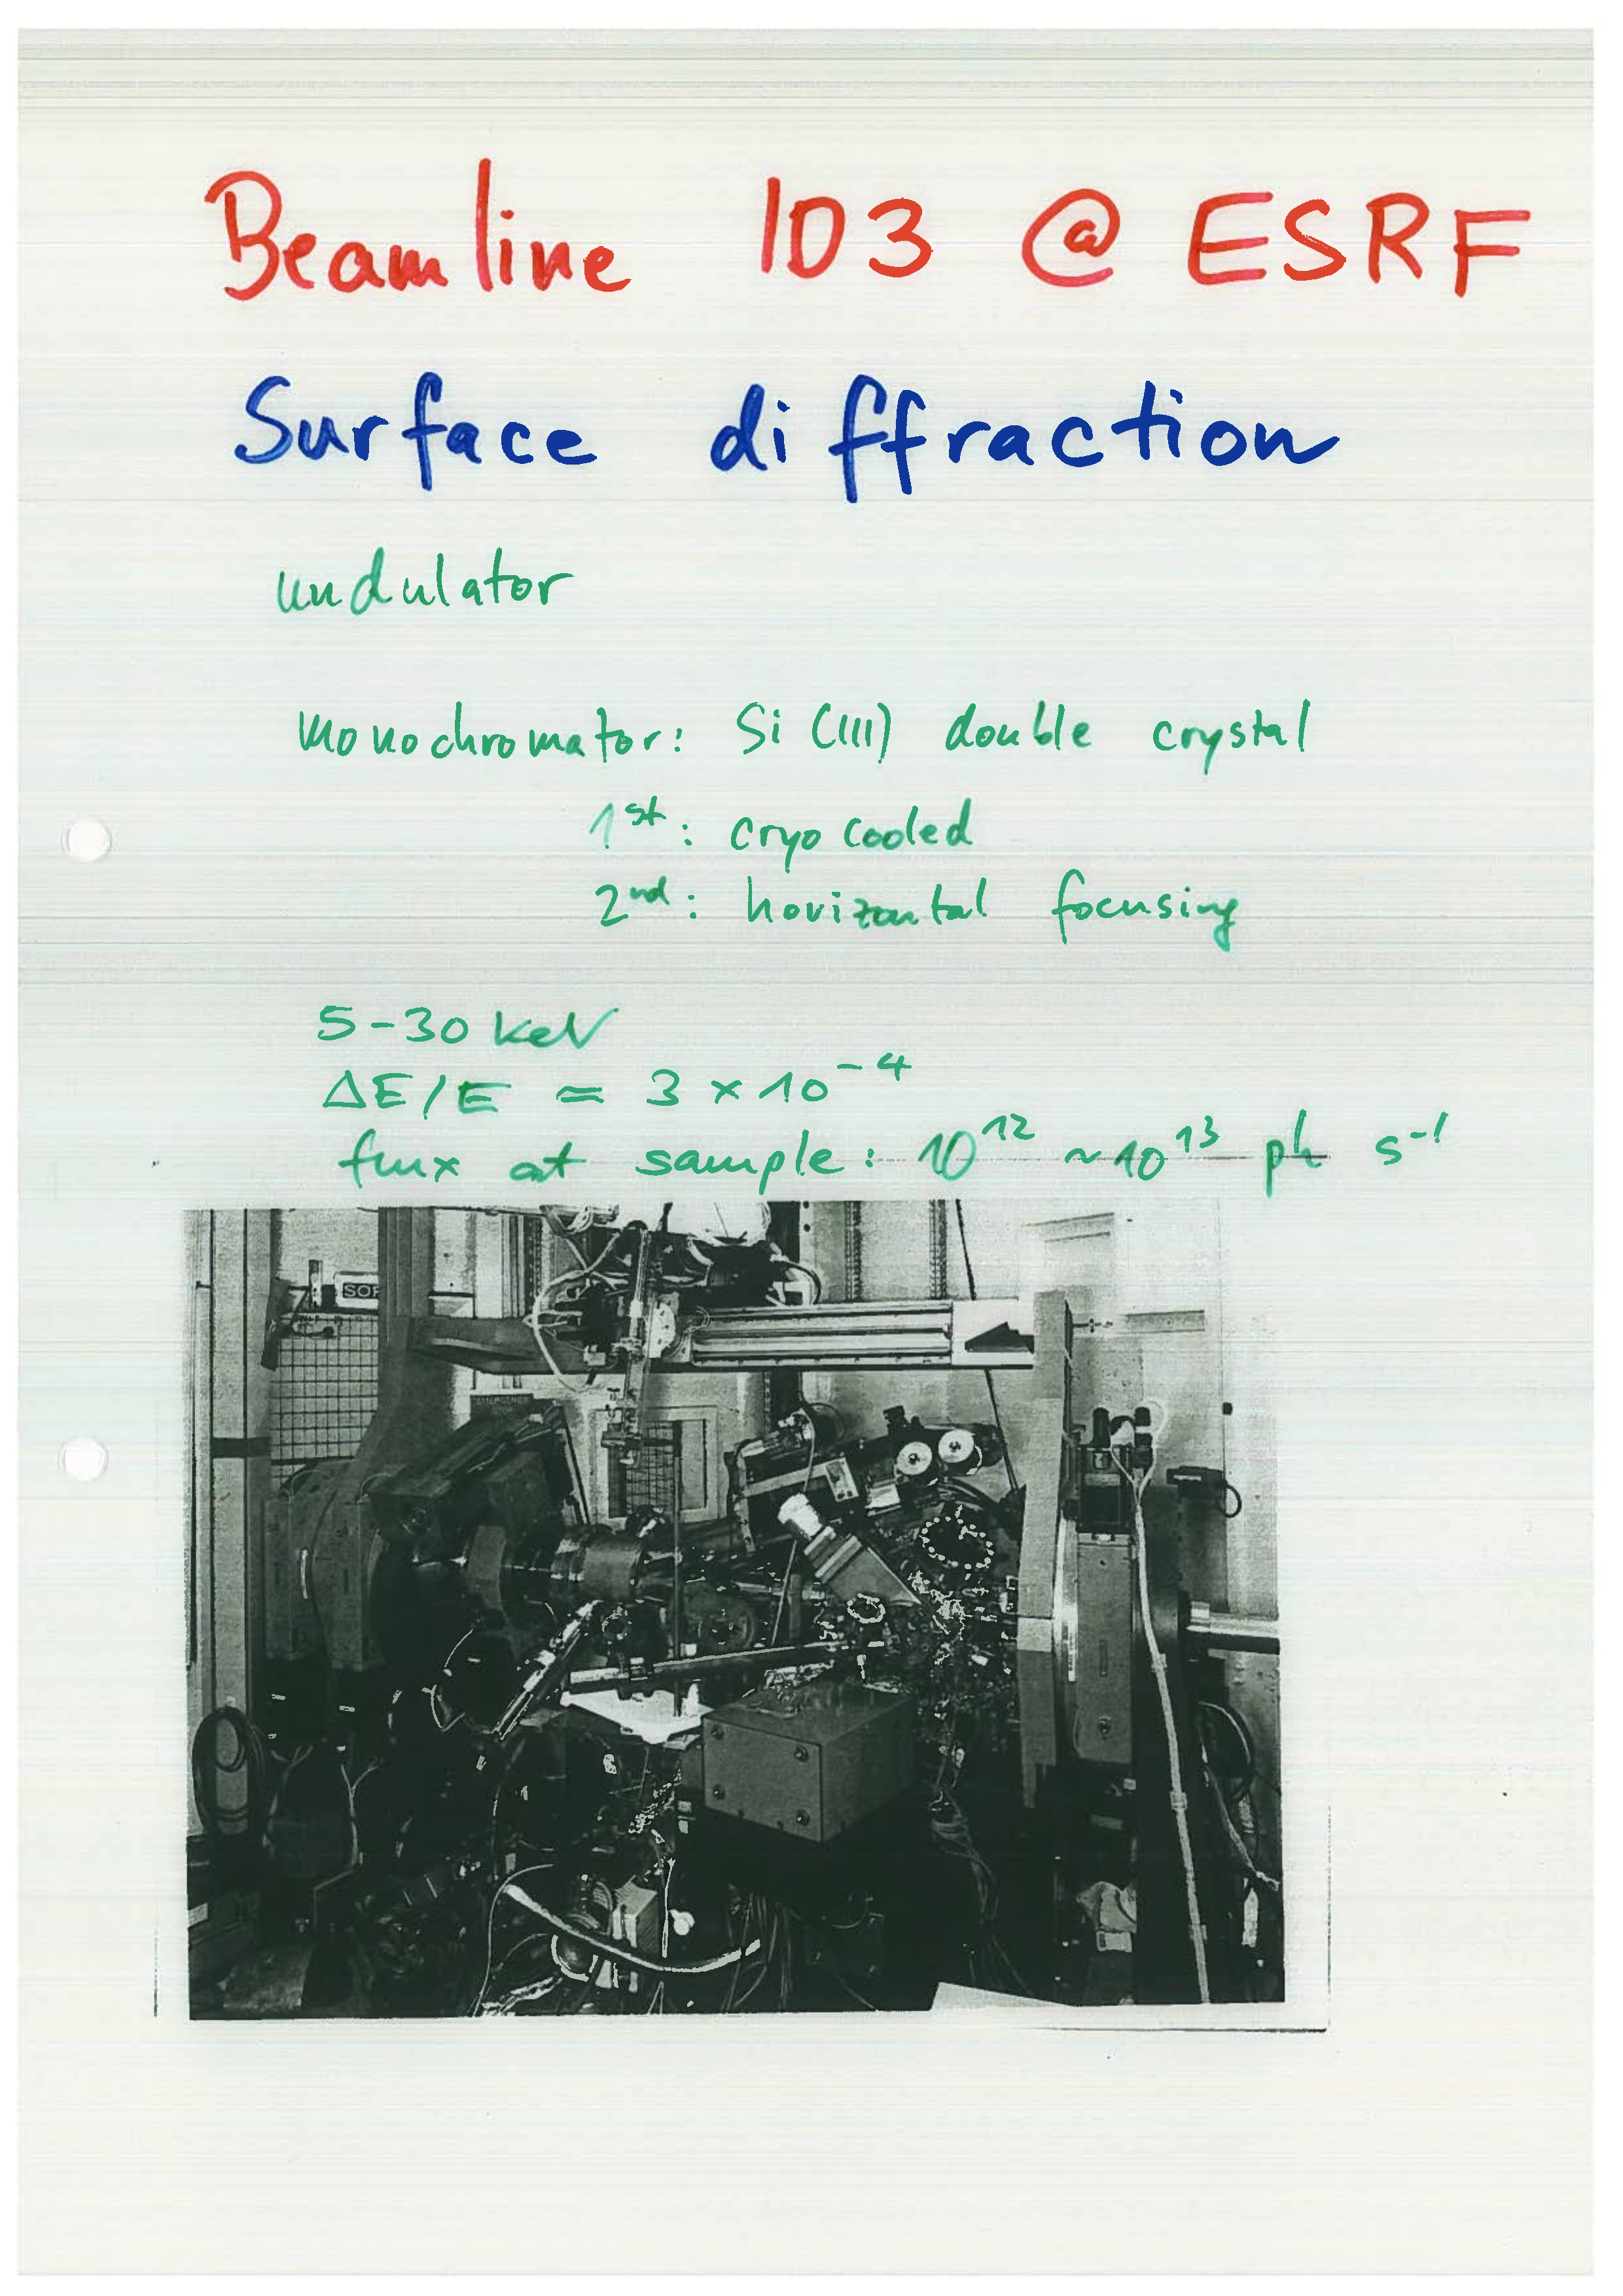 Beamline ID3 @ ESRF
Surface diffraction
undulator
monochromator: Si (111) double crystal
1st: cryo cooled
2nd: horizontal focusing
5-30 keV
ΔE/E ≃ 3 × 10⁻⁴
flux at sample: 10¹² ~ 10¹³ ph s⁻¹
SOF
EMERGENCY